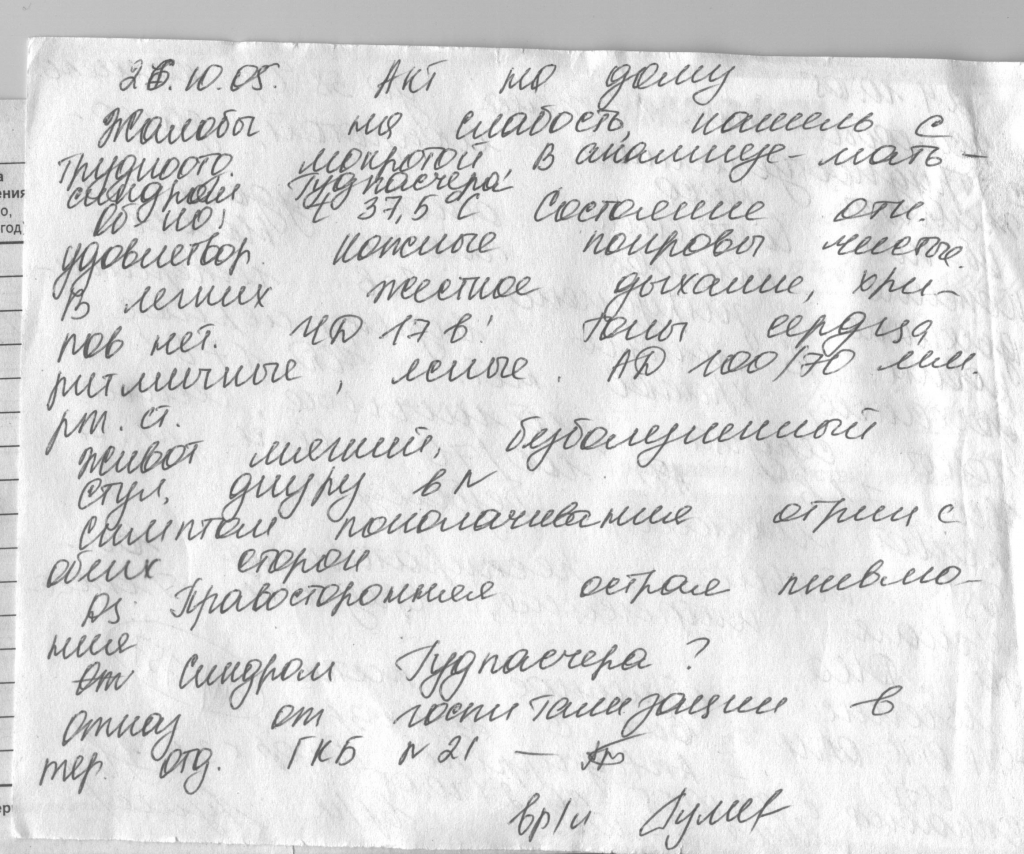 26.10.05. Акт на дому
Жалобы на слабость, кашель с
трудноотд. мокротой В анамнезе - мать -
синдром Гудпасчера
Об-но, t 37,5 С Состояние отн.
удовлетвор. Кожные покровы чистые.
В легких жесткое дыхание, хри-
пов нет. ЧД 17 в! Тоны сердца
ритмичные, ясные. АД 100/70 мм.
рт. ст.
Живот мягкий, безболезненный
Стул, диурез в N
Симптом поколачивания отриц с
обеих сторон
Дз: Правосторонняя острая пневмо-
ния
Синдром Гудпасчера ?
отказ от госпитализации в
тер. отд. ГКБ N 21 —
вр/л
а
ения
о,
год)
ер